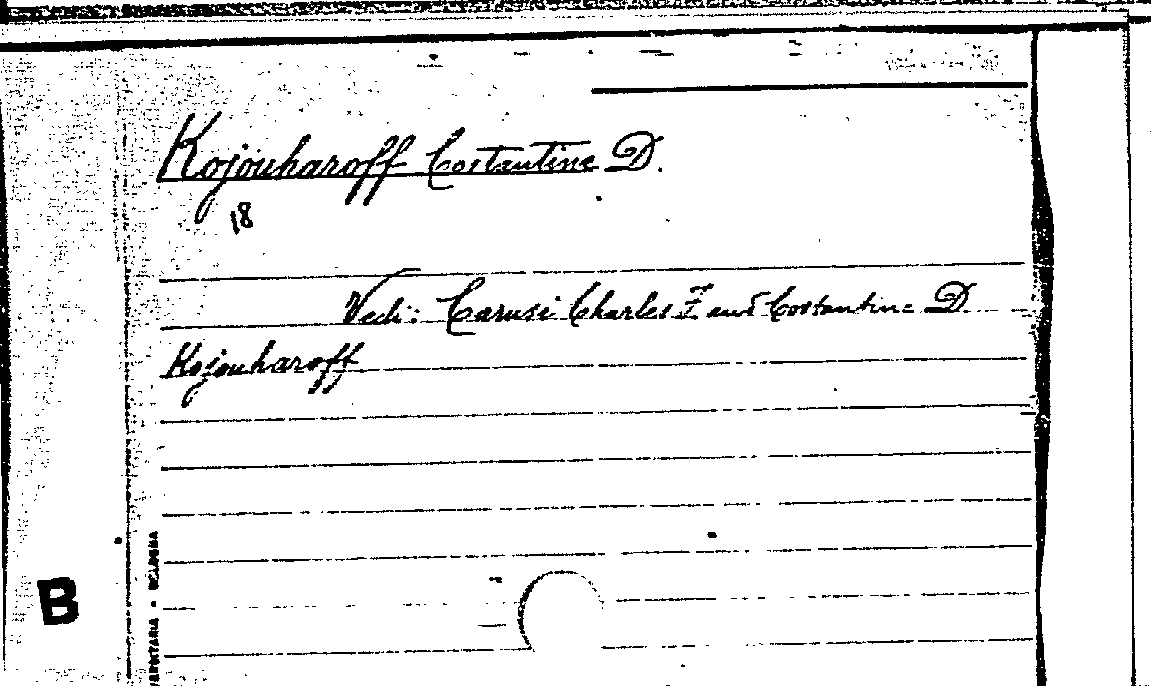 Kojouharoff Costantine D.
18
Vedi: Carusi Charles F. and Costantine D.
Kojouharoff
B